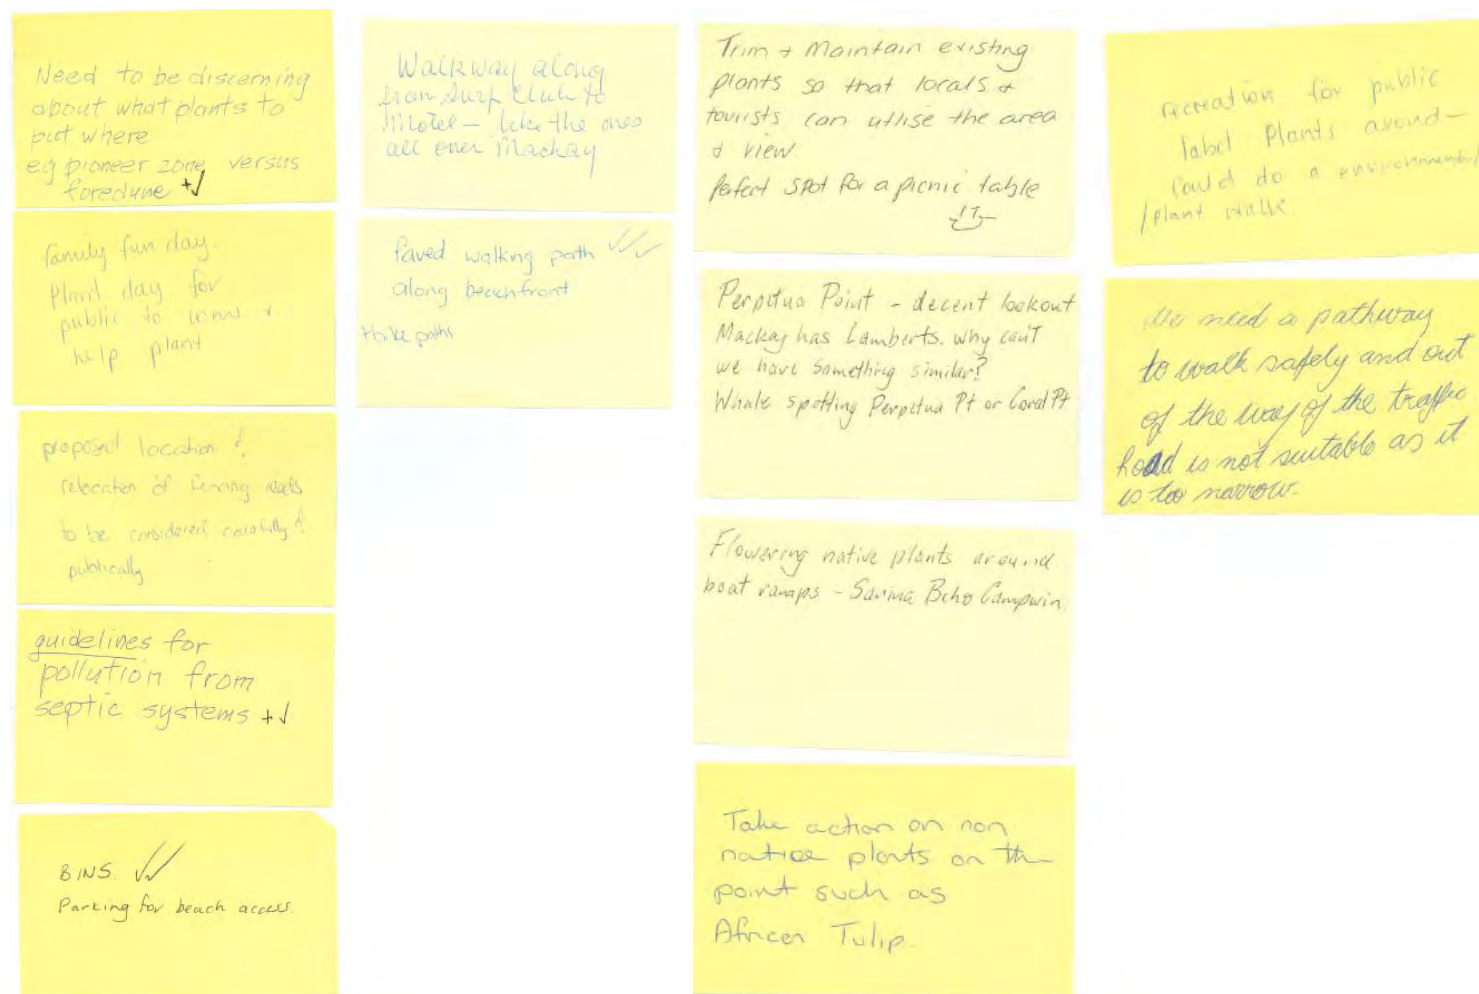 Need to be discerning
about what plants to
put where
eg pioneer zone versus
foredune +✓
family fun day.
Plant day for
public to come &
help plant
proposed location &
relocation of fencing needs
to be considered carefully &
publically
guidelines for
pollution from
septic systems +✓
BINS. ✓✓
Parking for beach access.
Walkway along
from Surf Club to
Motel - like the ones
all over Mackay
Paved walking path ✓✓✓
along beachfront
+ bike paths
Trim & Maintain existing
plants so that locals &
tourists can utilise the area
& view
Perfect spot for a picnic table
Perpetua Point - decent lookout
Mackay has Lamberts. Why can't
we have something similar?
Whale spotting Perpetua Pt or Coral Pt
Flowering native plants around
boat ramps - Sarina Bch & Campwin.
Take action on non
native plants on the
point such as
African Tulip.
recreation for public
label Plants around -
Could do a environmental
/plant walk.
We need a pathway
to walk safely and out
of the way of the traffic.
Road is not suitable as it
is too narrow.